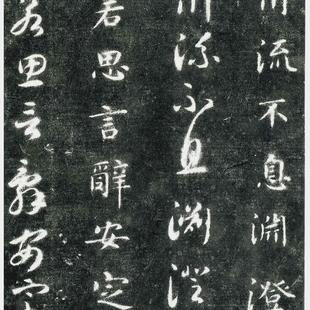 川流不息淵澄
川流不息淵澄
若思言辭安定
若思言辭安定